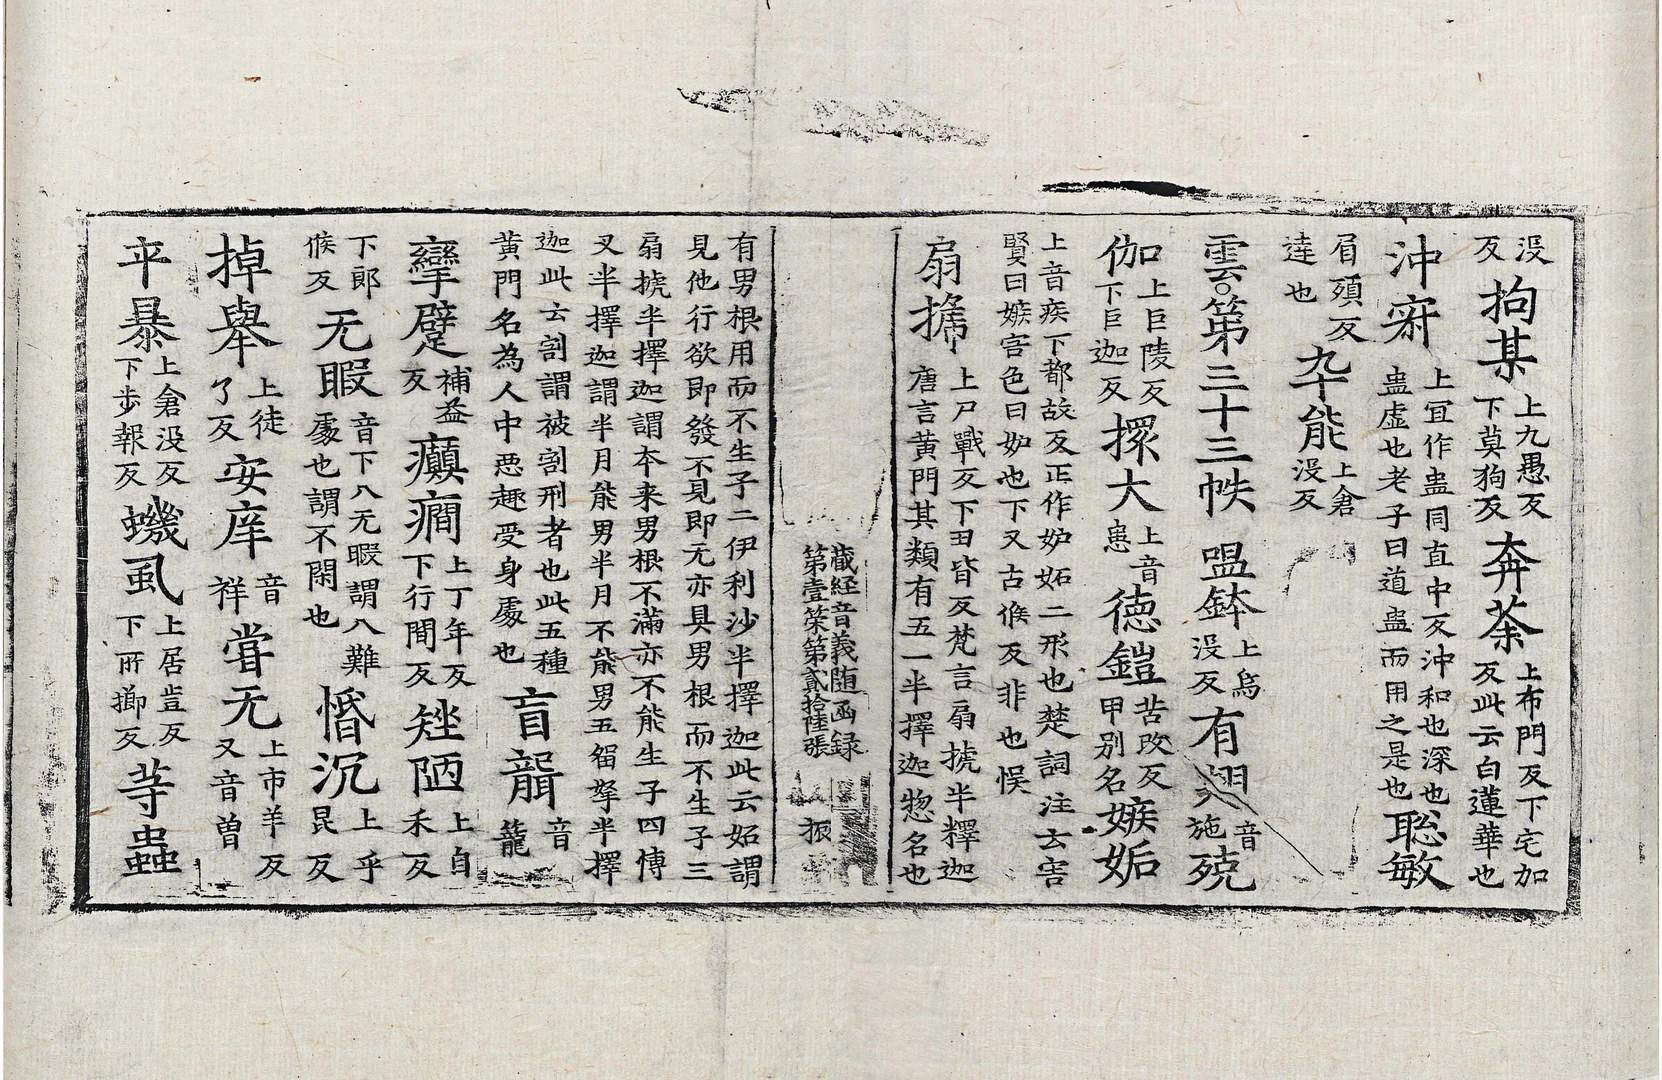 没反拘某上九愚反下莫狗反奔荼上布門反下宅加反此云白蓮華也
沖上冝作盅同直中反沖和也深也盅虚也老子曰道盅而用之是也聡敏
眉頭反達也卆能上倉没反
雲第三十三帙 嗢鉢上烏没反有翅音施殑
伽上巨陵反下巨迦反擐大上音患德鎧苦改反甲别名嫉妬
上音疾下都故反正作妒妬二形也楚詞注云害賢曰嫉害色曰妒也下又古候反非也悮
扇搋上尸戰反下丑皆反梵言扇搋半釋迦唐言黄門其類有五一半擇迦惣名也
藏經音義随函録
第壹筞第貳拾陸張 振
有男根用而不生子二伊利沙半擇迦此云妬謂見他行欲即發不見即无亦具男根而不生子三
扇搋半擇迦謂夲来男根不滿亦不能生子四博叉半擇迦謂半月能男半月不能男五留拏半擇
迦此云割謂被割刑者也此五種黄門名為人中惡趣受身處也盲聾音籠
攣躄補益反癲癇上丁年反下行間反矬陋上自禾反
下郎候反无暇音下八无暇謂八難處也謂不閑也惛沉上乎昆反
掉舉上徒了反安庠音祥甞无上市羊反又音曽
卒暴上倉没反下步報反蟣虱上居豈反下所擳反䓁蟲